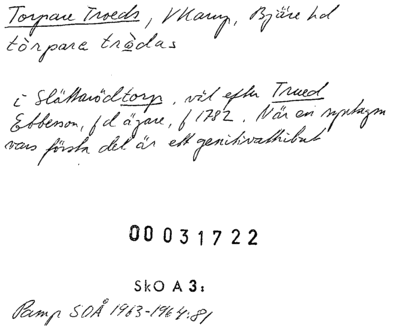 Torpare Troeds, V Karup, Bjäre hd
tòrpare trȧ̀das
i Slättarödtorp, väl efter Trued
Ebbesson, f d ägare, f 1782. När en syntagm
vars första del är ett genitivattribut
00031722
SkO A 3:
Pamp SOÅ 1963-1964:81